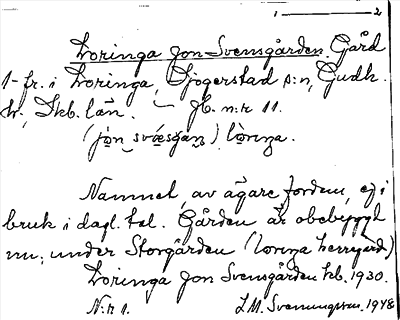 1 — 2
Loringa Jon-Svensgården Gård
1- fr. i Loringa, Djogerstad s:n, Gudh.
hd, Skb. län. — Jb. n:r 11.
Namnet, av ägare fordom, ej i
bruk i dagl. tal. Gården är obebyggd
nu; under Storgården (lorıŋa herregård)
Loringa Jon Svensgården kb. 1930.
N:r 1. L.M. Svenungsson. 1948